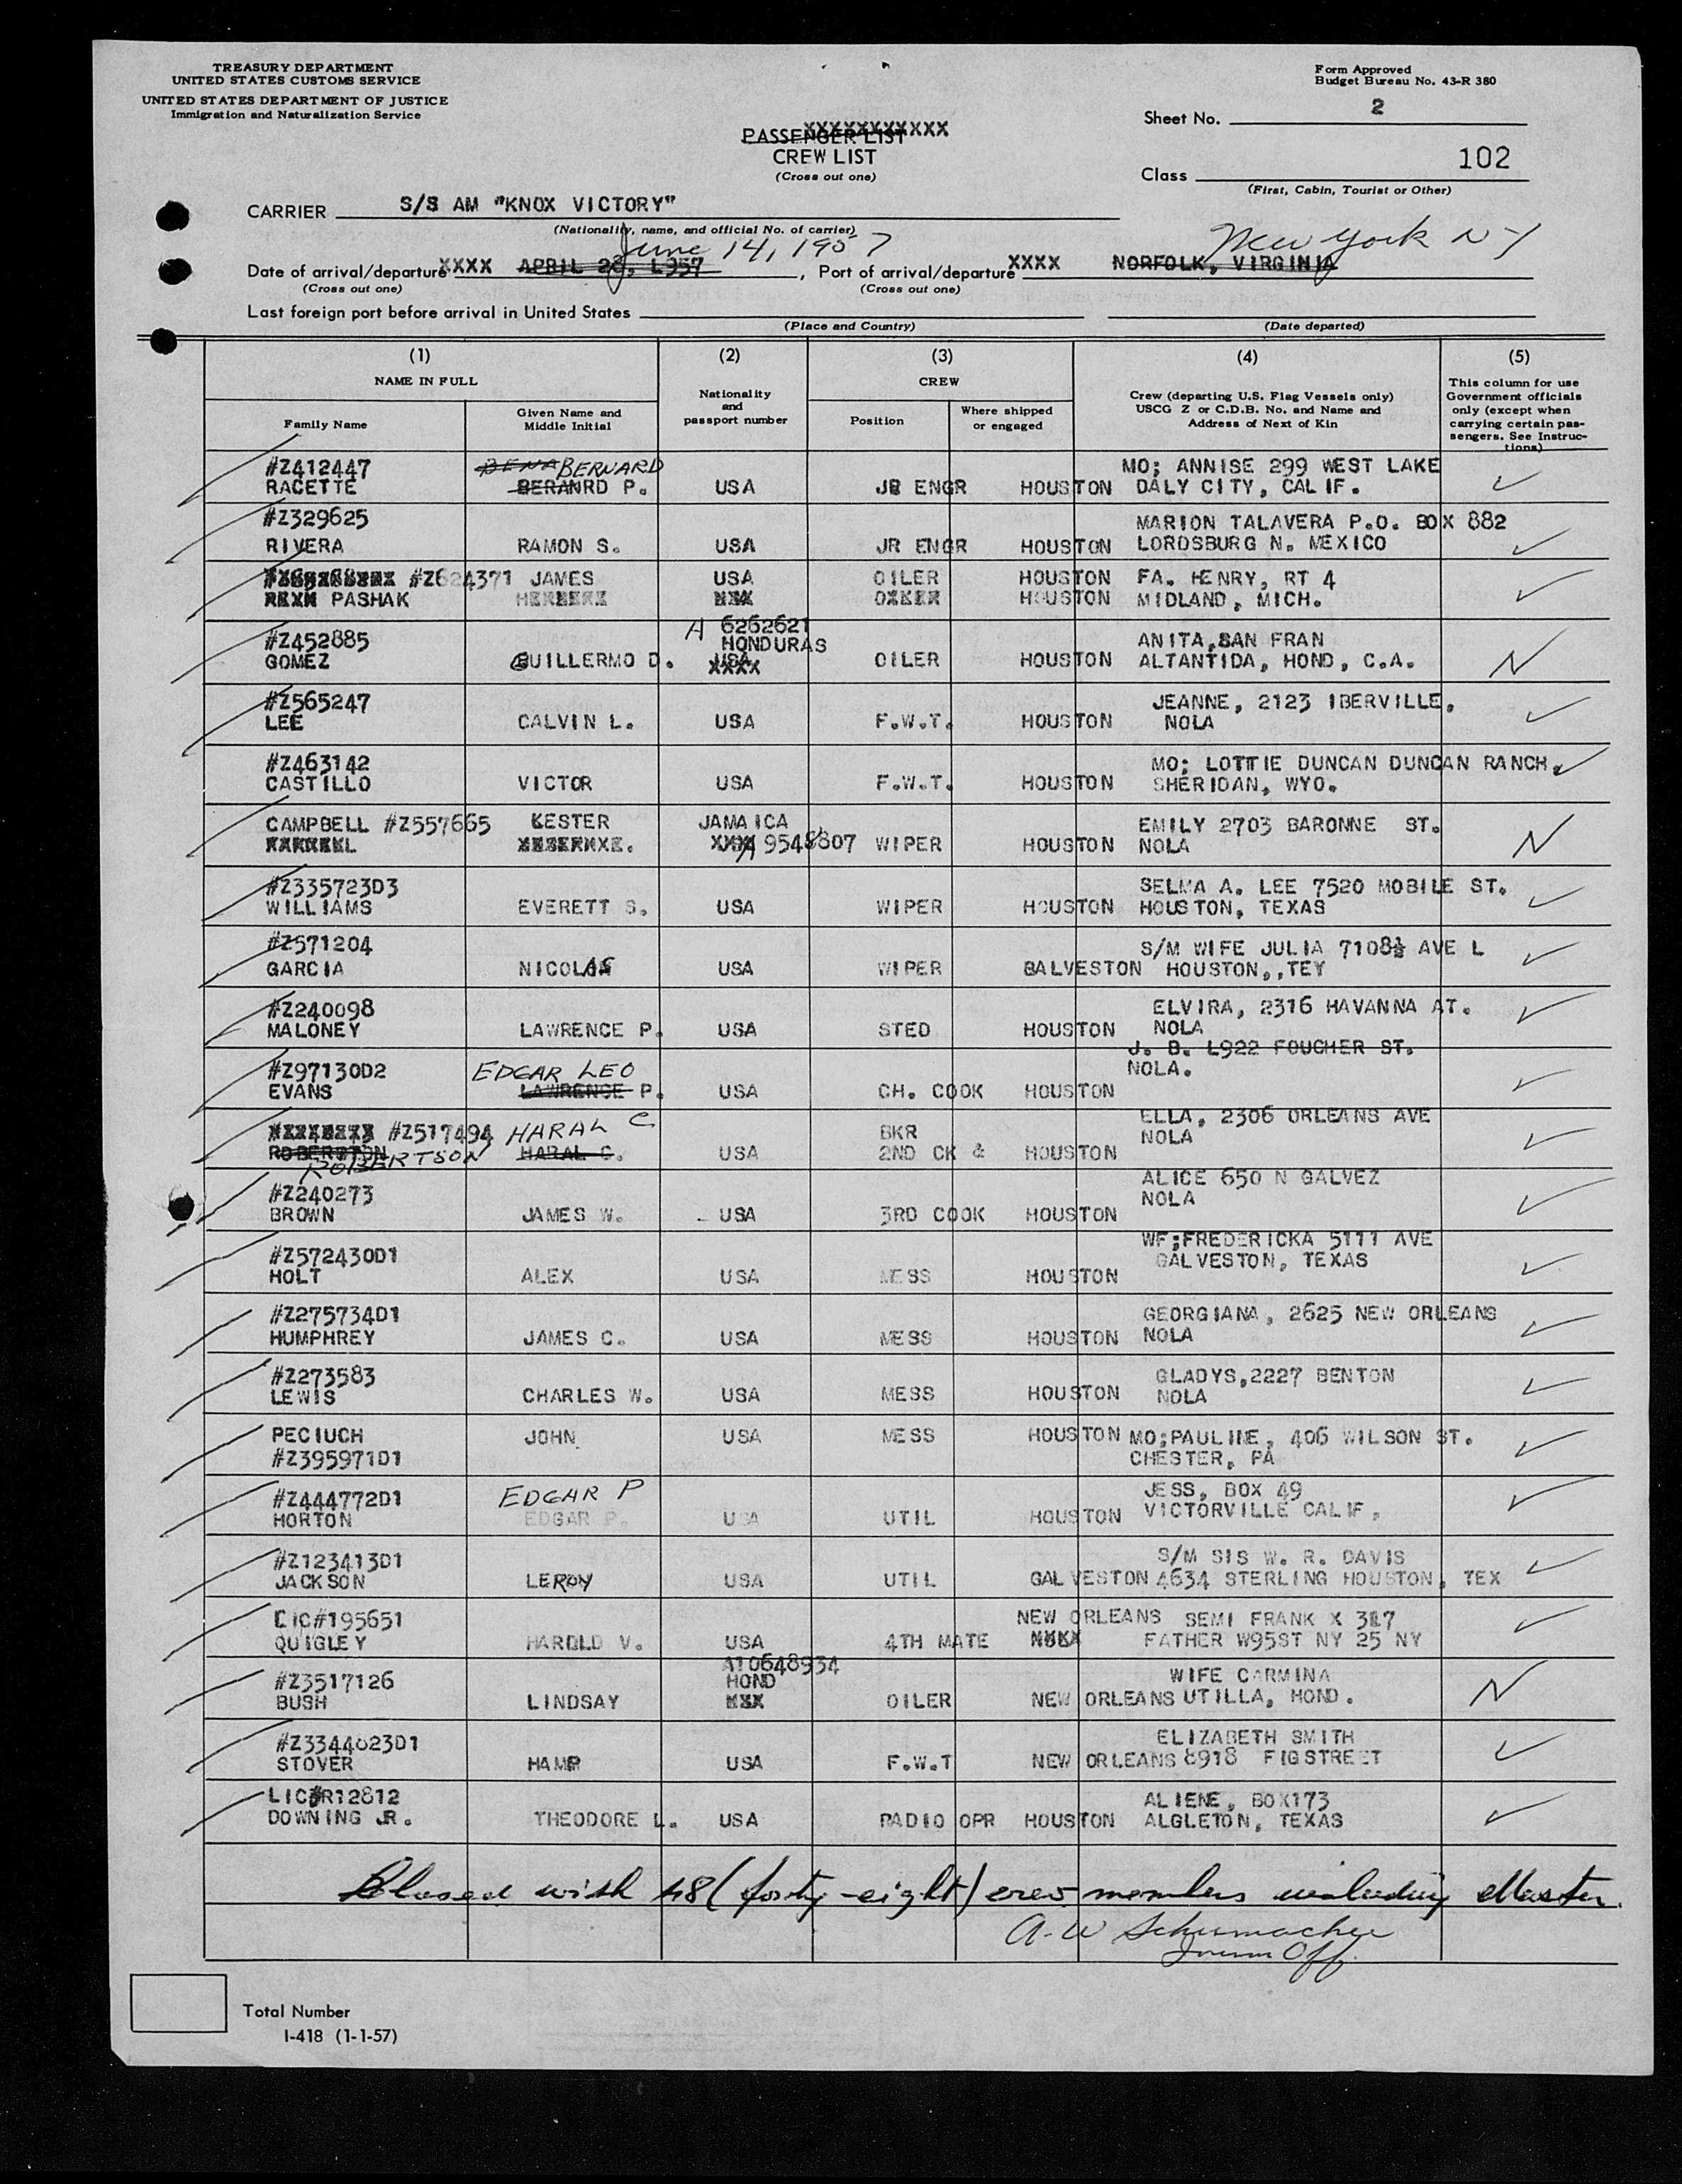 TREASURY DEPARTMENT
UNITED STATES CUSTOMS SERVICE
UNITED STATES DEPARTMENT OF JUSTICE
Immigration and Naturalization Service
Form Approved
Budget Bureau No. 43-R 380
Sheet No. 2
XXXXXXXXXXX
PASSENGER LIST
CREW LIST
(Cross out one)
102
Class
(First, Cabin, Tourist or Other)
CARRIER S/S AM "KNOX VICTORY"
(Nationality, name, and official No. of carrier)
June 14, 1957 New York N-Y
Date of arrival/departure XXXX APRIL 28, L957, Port of arrival/departure XXXX NORFOLK, VIRGINIA
(Cross out one) (Cross out one)
Last foreign port before arrival in United States
(Place and Country) (Date departed)
(1) (2) (3) (4) (5)
NAME IN FULL Nationality and passport number CREW Crew (departing U.S. Flag Vessels only) USCG Z or C.D.B. No. and Name and Address of Next of Kin This column for use Government officials only (except when carrying certain passengers. See Instructions)
Family Name Given Name and Middle Initial Position Where shipped or engaged
#Z412447 BENA BERNARD MO; ANNISE 299 WEST LAKE
RACETTE BERANRD P. USA JR ENGR HOUSTON DALY CITY, CALIF.
#Z329625 MARION TALAVERA P.O. BOX 882
RIVERA RAMON S. USA JR ENGR HOUSTON LORDSBURG N. MEXICO
#Z624371 JAMES USA OILER HOUSTON FA. HENRY, RT 4
PASHAK HOUSTON MIDLAND, MICH.
A 6262621
#Z452885 HONDURAS ANITA, SAN FRAN
GOMEZ GUILLERMO D. USA XXXX OILER HOUSTON ALTANTIDA, HOND, C.A. N
#Z565247 JEANNE, 2123 IBERVILLE,
LEE CALVIN L. USA F.W.T. HOUSTON NOLA
#Z463142 MO; LOTTIE DUNCAN DUNCAN RANCH,
CASTILLO VICTOR USA F.W.T. HOUSTON SHERIDAN, WYO.
CAMPBELL #Z557665 KESTER JAMAICA EMILY 2703 BARONNE ST.
A 9548807 WIPER HOUSTON NOLA N
#Z335723D3 SELMA A. LEE 7520 MOBILE ST.
WILLIAMS EVERETT S. USA WIPER HOUSTON HOUSTON, TEXAS
#Z571204 S/M WIFE JULIA 7108½ AVE L
GARCIA NICOLAS USA WIPER GALVESTON HOUSTON,,TEY
#Z240098 ELVIRA, 2316 HAVANNA AT.
MALONEY LAWRENCE P. USA STED HOUSTON NOLA
J. B. L922 FOUCHER ST.
#Z97130D2 EDGAR LEO NOLA.
EVANS LAWRENCE P. USA CH. COOK HOUSTON
ELLA, 2306 ORLEANS AVE
#Z517494 HARAL C BKR NOLA
ROBERSTON HARAL C. USA 2ND CK & HOUSTON
ROBERTSON
ALICE 650 N GALVEZ
#Z240273 NOLA
BROWN JAMES W. USA 3RD COOK HOUSTON
WF;FREDERICKA 5111 AVE
#Z572430D1 GALVESTON, TEXAS
HOLT ALEX USA MESS HOUSTON
#Z275734D1 GEORGIANA, 2625 NEW ORLEANS
HUMPHREY JAMES C. USA MESS HOUSTON NOLA
#Z273583 GLADYS,2227 BENTON
LEWIS CHARLES W. USA MESS HOUSTON NOLA
PECIUCH JOHN USA MESS HOUSTON MO;PAULINE, 406 WILSON ST.
#Z395971D1 CHESTER, PA
#Z444772D1 EDGAR P JESS, BOX 49
HORTON EDGAR P. USA UTIL HOUSTON VICTORVILLE CALIF,
#Z123413D1 S/M SIS W. R. DAVIS
JACKSON LEROY USA UTIL GALVESTON 4634 STERLING HOUSTON, TEX
LIC#195651 NEW ORLEANS SEMI FRANK X 317
QUIGLEY HAROLD V. USA 4TH MATE FATHER W95ST NY 25 NY
A10648934
#Z3517126 HOND WIFE CARMINA
BUSH LINDSAY OILER NEW ORLEANS UTILLA, HOND. N
#Z3344023D1 ELIZABETH SMITH
STOVER HAMP USA F.W.T NEW ORLEANS 8918 FIGSTREET
LIC#R12812 ALIENE, BOX173
DOWNING JR. THEODORE L. USA RADIO OPR HOUSTON ALGLETON, TEXAS
Closed with 48 (forty-eight) crew members including Master.
A-W Schumacher
Immn Off.
Total Number
I-418 (1-1-57)